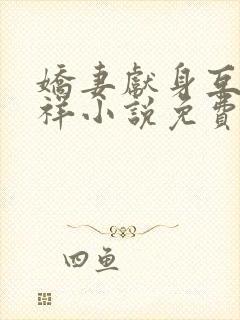 嬌妻獻身互
祥小說免費
四魚